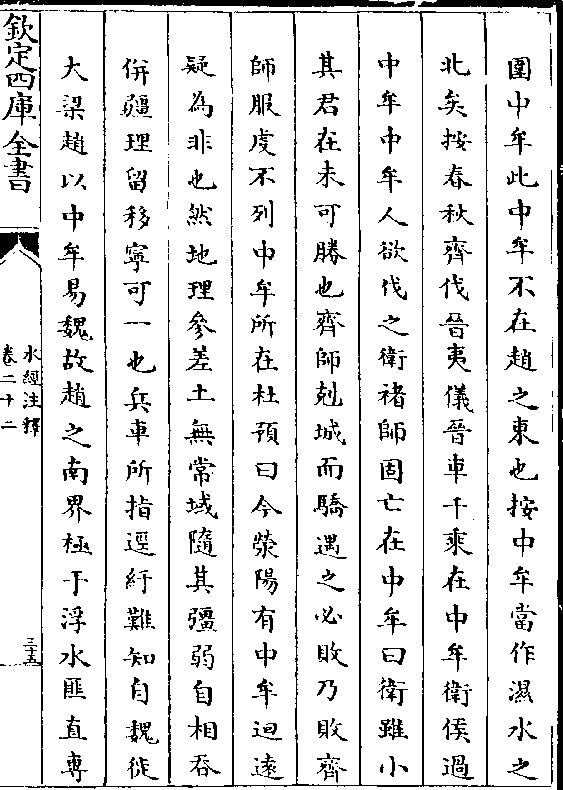 圍中牟此中牟不在趙之東也按中牟當作濕水之
北矣按春秋齊伐晉夷儀晉車千乘在中牟衛侯過
中牟中牟人欲伐之衛褚師固亡在中牟曰衛雖小
其君在未可勝也齊師剋城而驕遇之必敗乃敗齊
師服虔不列中牟所在杜預曰今滎陽有中牟迴遠
疑為非也然地理參差土無常域隨其彊弱自相吞
併疆理留移寧可一也兵車所指逕紆難知自魏徙
大梁趙以中牟易魏故趙之南界極于浮水匪直專
欽定四庫全書
水經注釋
卷二十二
三五